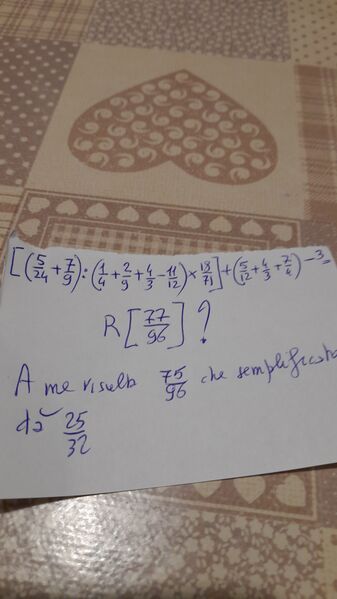 [(5/24 + 7/9) : (1/4 + 2/9 + 4/3 - 11/12) × 18/71] + (5/12 + 4/3 + 7/4) - 3 =
R [77/96] ?
A me risulta 75/96 che semplificato
dà 25/32